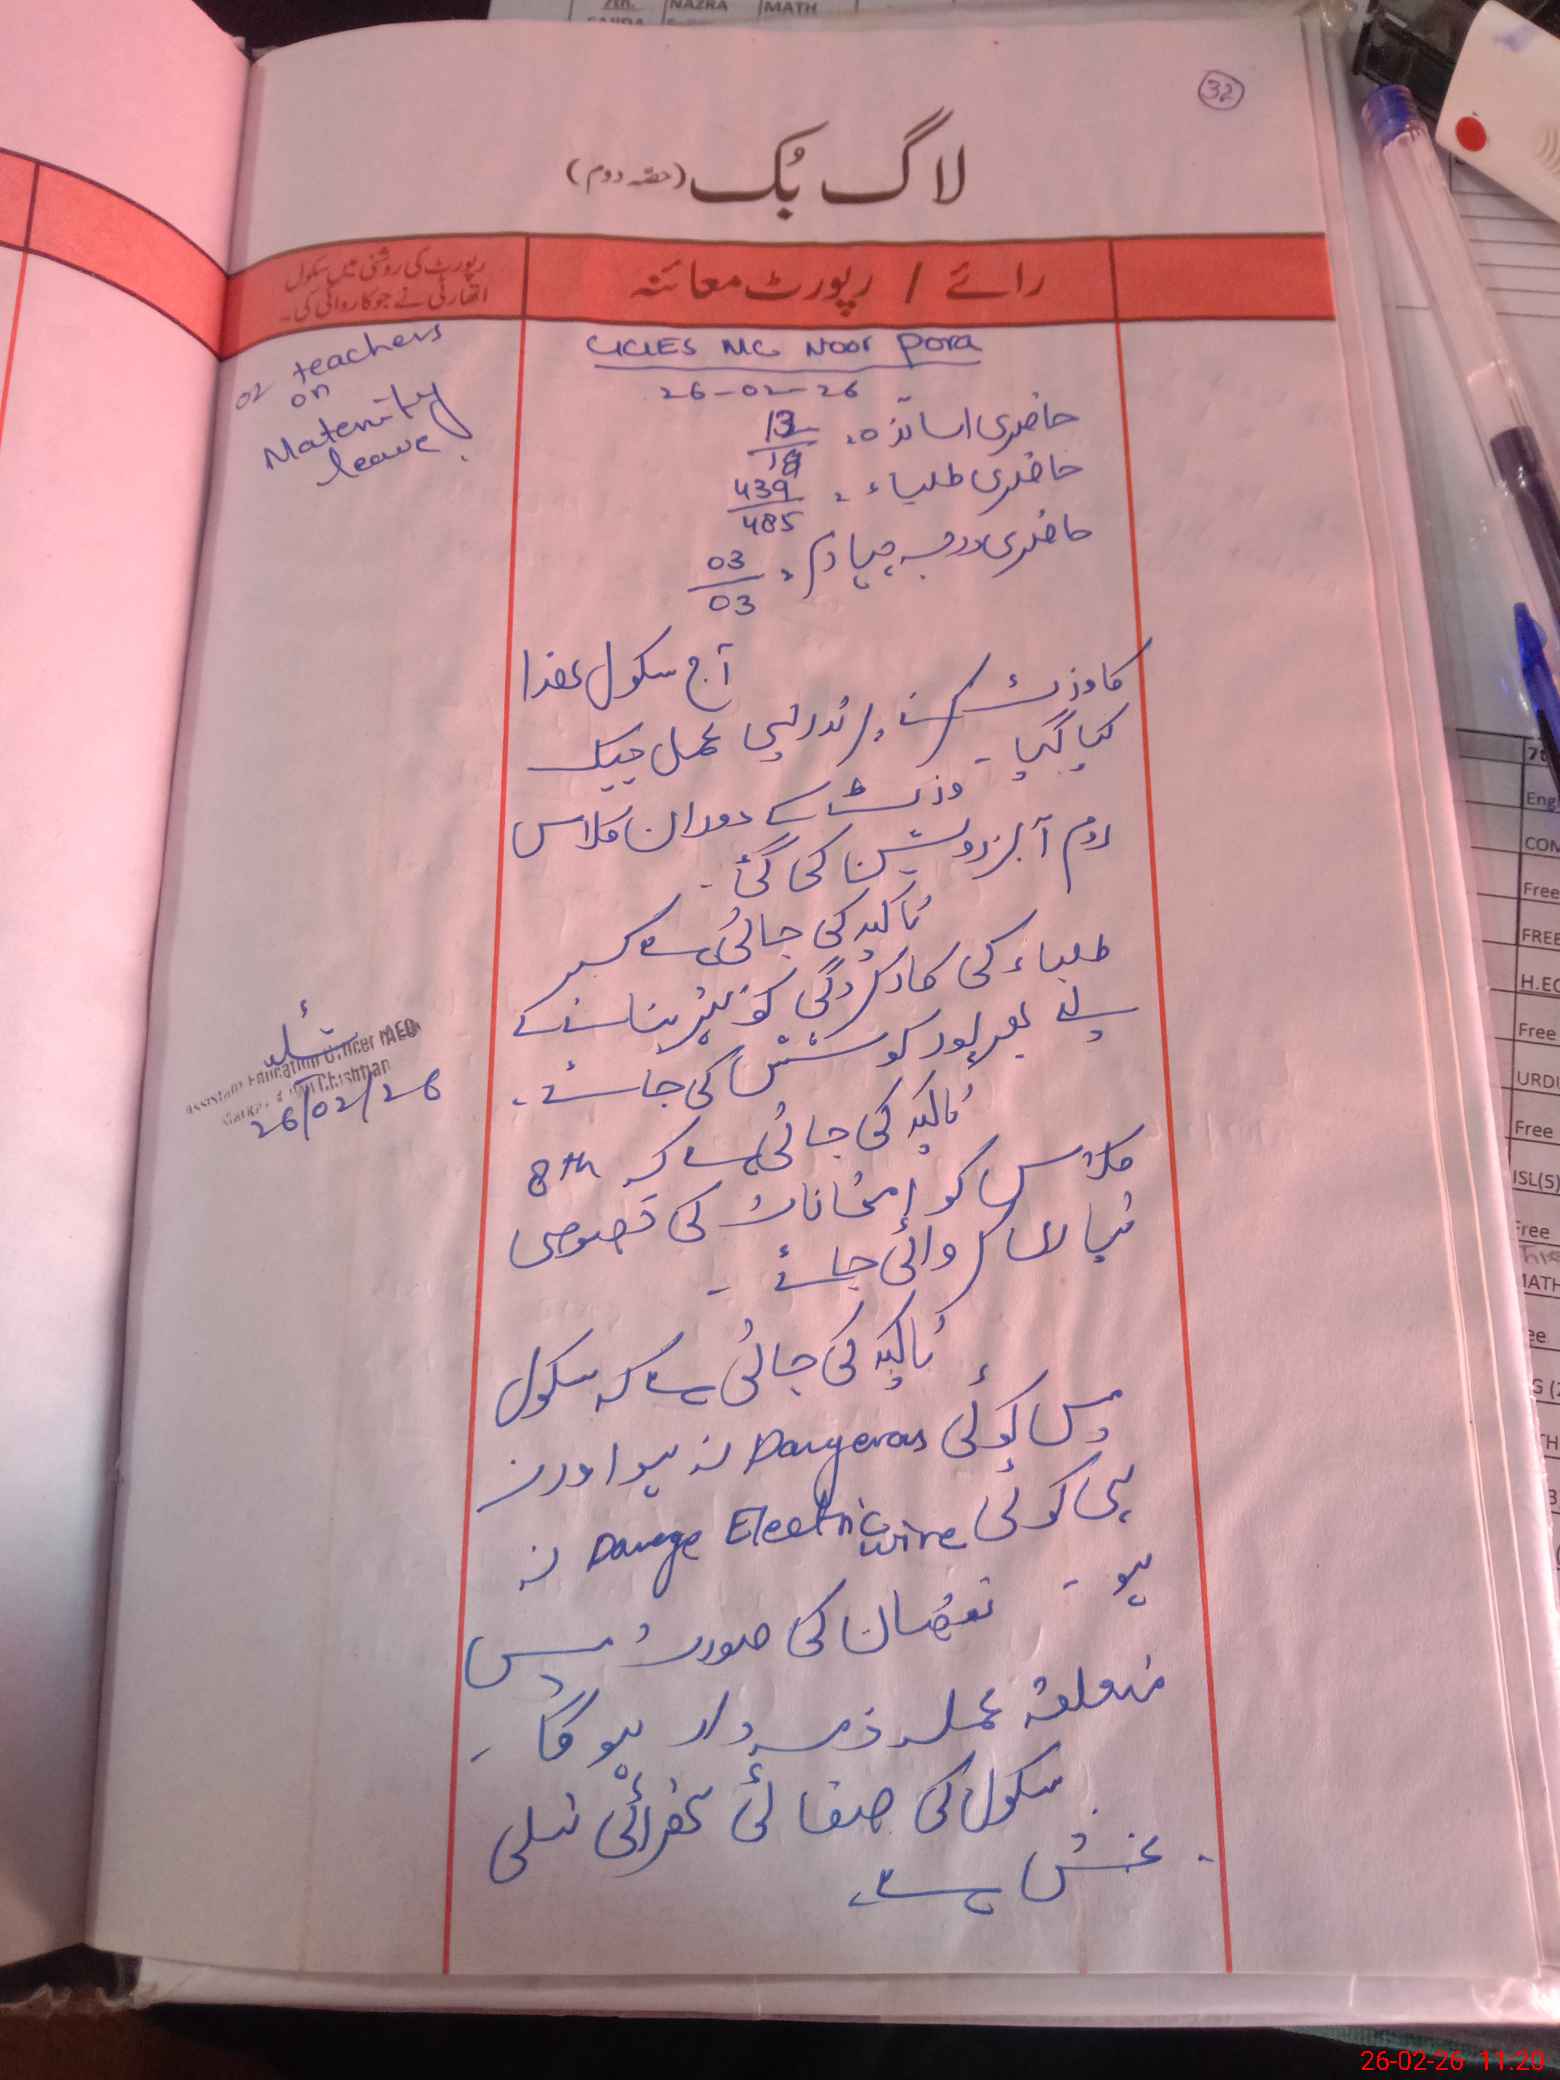 32
لاگ بُک (حصّہ دوم)
رائے / رپورٹ معائنہ
رپورٹ کی روشنی میں سکول
اتھارٹی نے جو کاروائی کی۔
02 teachers
on
Maternity
leave.
MC Noor Pora
26-02-26
حاضری اساتذہ
حاضری طلباء 439/485
حاضری درجہ چہارم 03/03
آج سکول ھذا
کا وزٹ کرنے پر تدریسی عمل چیک
کیا گیا۔ وزٹ کے دوران کلاس
روم آبزرویشن کی گئی۔
تاکید کی جاتی ہے کہ
طلباء کی کارکردگی کو بہتر بنانے کے
لئے بھرپور کوشش کی جائے۔
تاکید کی جاتی ہے کہ 8th
کلاس کو امتحانات کی خصوصی
تیاری کروائی جائے۔
تاکید کی جاتی ہے کہ سکول
میں کوئی Dangerous نہ ہو اور نہ
ہی کوئی Electric wire نہ
ہو۔ نقصان کی صورت میں
متعلقہ عملہ ذمہ دار ہو گا۔
سکول کی صفائی ستھرائی تسلی
بخش ہے۔
Assistant Education Officer
Chishtian
26/02/26
NAZRA
MATH
Eng
COM
Free
FREE
H.EC
Free
URDU
Free
ISL(5)
Free
MATH
26-02-26 11:20